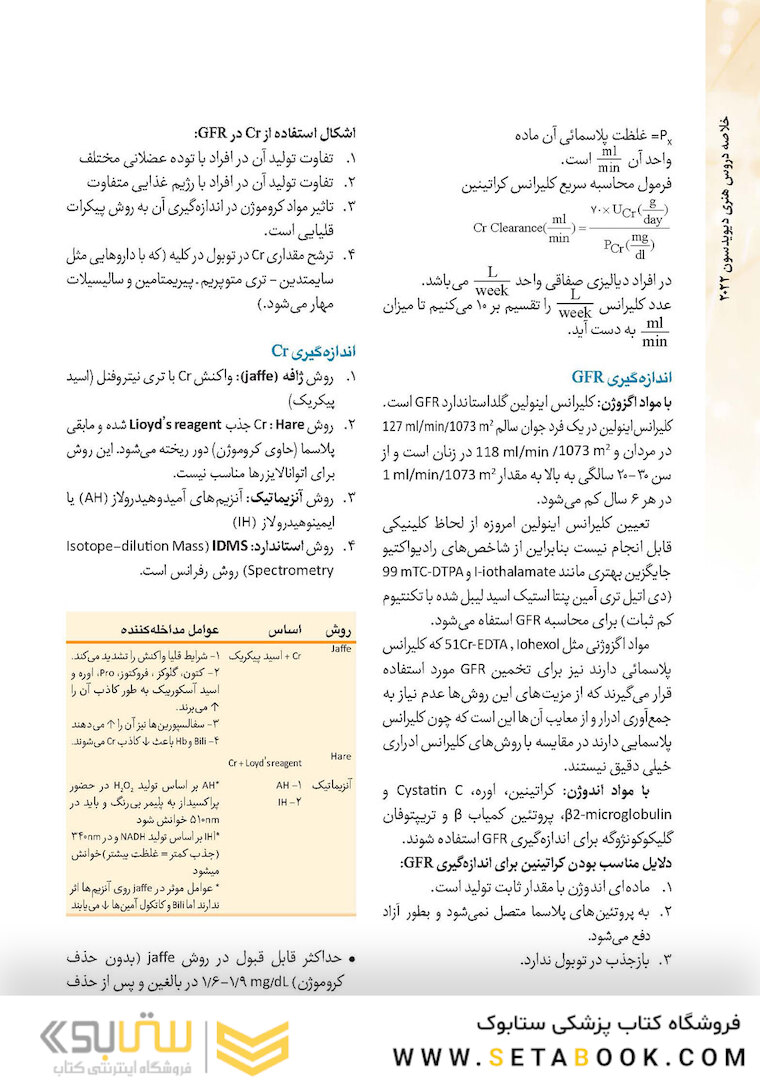 خلاصه دروس هنری دیویدسون ۲۰۲۲
Px= غلظت پلاسمائی آن ماده
واحد آن ml/min است.
فرمول محاسبه سریع کلیرانس کراتینین
Cr Clearance(ml/min) = ۷۰× UCr(g/day) / PCr(mg/dl)
در افراد دیالیزی صفاقی واحد L/week می‌باشد.
عدد کلیرانس L/week را تقسیم بر ۱۰ می‌کنیم تا میزان
ml/min به دست آید.
اندازه‌گیری GFR
با مواد اگزوژن: کلیرانس اینولین گلداستاندارد GFR است.
کلیرانس‌اینولین در یک فرد جوان سالم 127 ml/min/1073 m²
در مردان و 118 ml/min /1073 m² در زنان است و از
سن ۳۰-۲۰ سالگی به بالا به مقدار 1 ml/min/1073 m²
در هر ۶ سال کم می‌شود.
تعیین کلیرانس اینولین امروزه از لحاظ کلینیکی
قابل انجام نیست بنابراین از شاخص‌های رادیواکتیو
جایگزین بهتری مانند I-iothalamate و 99 mTC-DTPA
(دی اتیل تری آمین پنتا استیک اسید لیبل شده با تکنتیوم
کم ثبات) برای محاسبه GFR استفاه می‌شود.
مواد اگزوژنی مثل 51Cr-EDTA , Iohexol که کلیرانس
پلاسمائی دارند نیز برای تخمین GFR مورد استفاده
قرار می‌گیرند که از مزیت‌های این روش‌ها عدم نیاز به
جمع‌آوری ادرار و از معایب آن‌ها این است که چون کلیرانس
پلاسمایی دارند در مقایسه با روش‌های کلیرانس ادراری
خیلی دقیق نیستند.
با مواد اندوژن: کراتینین، اوره، Cystatin C و
β2-microglobulin، پروتئین کمیاب β و تریپتوفان
گلیکوکونژوگه برای اندازه‌گیری GFR استفاده شوند.
دلایل مناسب بودن کراتینین برای اندازه‌گیری GFR:
۱. ماده‌ای اندوژن با مقدار ثابت تولید است.
۲. به پروتئین‌های پلاسما متصل نمی‌شود و بطور آزاد
دفع می‌شود.
۳. بازجذب در توبول ندارد.
اشکال استفاده از Cr در GFR:
۱. تفاوت تولید آن در افراد با توده عضلانی مختلف
۲. تفاوت تولید آن در افراد با رژیم غذایی متفاوت
۳. تاثیر مواد کروموژن در اندازه‌گیری آن به روش پیکرات
قلیایی است.
۴. ترشح مقداری Cr در توبول در کلیه (که با داروهایی مثل
سایمتدین - تری متوپریم . پیریمتامین و سالیسیلات
مهار می‌شود.)
اندازه‌گیری Cr
۱. روش ژافه (jaffe): واکنش Cr با تری نیتروفنل (اسید
پیکریک)
۲. روش Cr : Hare جذب Lioyd's reagent شده و مابقی
پلاسما (حاوی کروموژن) دور ریخته می‌شود. این روش
برای اتوانالایزرها مناسب نیست.
۳. روش آنزیماتیک: آنزیم‌های آمیدوهیدرولاز (AH) یا
ایمینوهیدرولاز (IH)
۴. روش استاندارد: IDMS (Isotope-dilution Mass
Spectrometry) روش رفرانس است.
روش اساس عوامل مداخله‌کننده
Jaffe Cr + اسید پیکریک ۱- شرایط قلیا واکنش را تشدید می‌کند.
۲- کتون، گلوکز ، فروکتوز، Pro، اوره و
اسید آسکوربیک به طور کاذب آن را
↑ می‌برند.
۳- سفالسپورین‌ها نیز آن را ↑ می‌دهند
۴- Bili و Hb باعث ↓ کاذب Cr می‌شوند.
Hare Cr + Loyd'sreagent
آنزیماتیک ۱- AH *AH بر اساس تولید H₂O₂ در حضور
۲- IH پراکسیداز به پلیمر بی‌رنگ و باید در
۵۱۰nm خوانش شود
*IH بر اساس تولید NADH و در ۳۴۰nm
(جذب کمتر = غلظت بیشتر) خوانش
میشود
* عوامل موثر در jaffe روی آنزیم‌ها اثر
ندارند اما Bili و کاتکول آمین‌ها ↓ می‌یابند
• حداکثر قابل قبول در روش jaffe (بدون حذف
کروموژن) ۱/۶-۱/۹ mg/dL در بالغین و پس از حذف
فروشگاه کتاب پزشکی ستابوک
WWW.SETABOOK.COM
ستابوک
فروشگاه اینترنتی کتاب